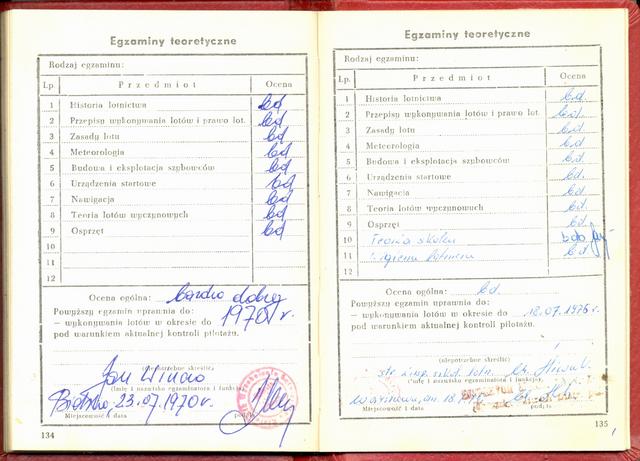 Egzaminy teoretyczne
Rodzaj egzaminu:
Lp. Przedmiot Ocena
1 Historia lotnictwa bd
2 Przepisy wykonywania lotów i prawo lot. bd
3 Zasady lotu bd
4 Meteorologia bd
5 Budowa i eksplotacja szybowców bd
6 Urządzenia startowe bd
7 Nawigacja bd
8 Teoria lotów wyczynowych bd
9 Osprzęt bd
10
11
12
Ocena ogólna: bardzo dobry
Powyższy egzamin uprawnia do:
— wykonywania lotów w okresie do 1970 r.
pod warunkiem aktualnej kontroli pilotażu.
(niepotrzebne skreślić)
Jan
(imię i nazwisko egzaminatora i funkcja)
23.07.1970r.
Miejscowość i data podpis
134
Egzaminy teoretyczne
Rodzaj egzaminu:
Lp. Przedmiot Ocena
1 Historia lotnictwa bd.
2 Przepisy wykonywania lotów i prawo lot. bd.
3 Zasady lotu bd.
4 Meteorologia bd.
5 Budowa i eksplotacja szybowców bd.
6 Urządzenia startowe bd.
7 Nawigacja bd.
8 Teoria lotów wyczynowych bd.
9 Osprzęt bd.
10 Teoria
11 bd
12
Ocena ogólna: bd.
Powyższy egzamin uprawnia do:
— wykonywania lotów w okresie do 18.07.1976r.
pod warunkiem aktualnej kontroli pilotażu.
(niepotrzebne skreślić)
(imię i nazwisko egzaminatora i funkcja)
Miejscowość i data podpis
135